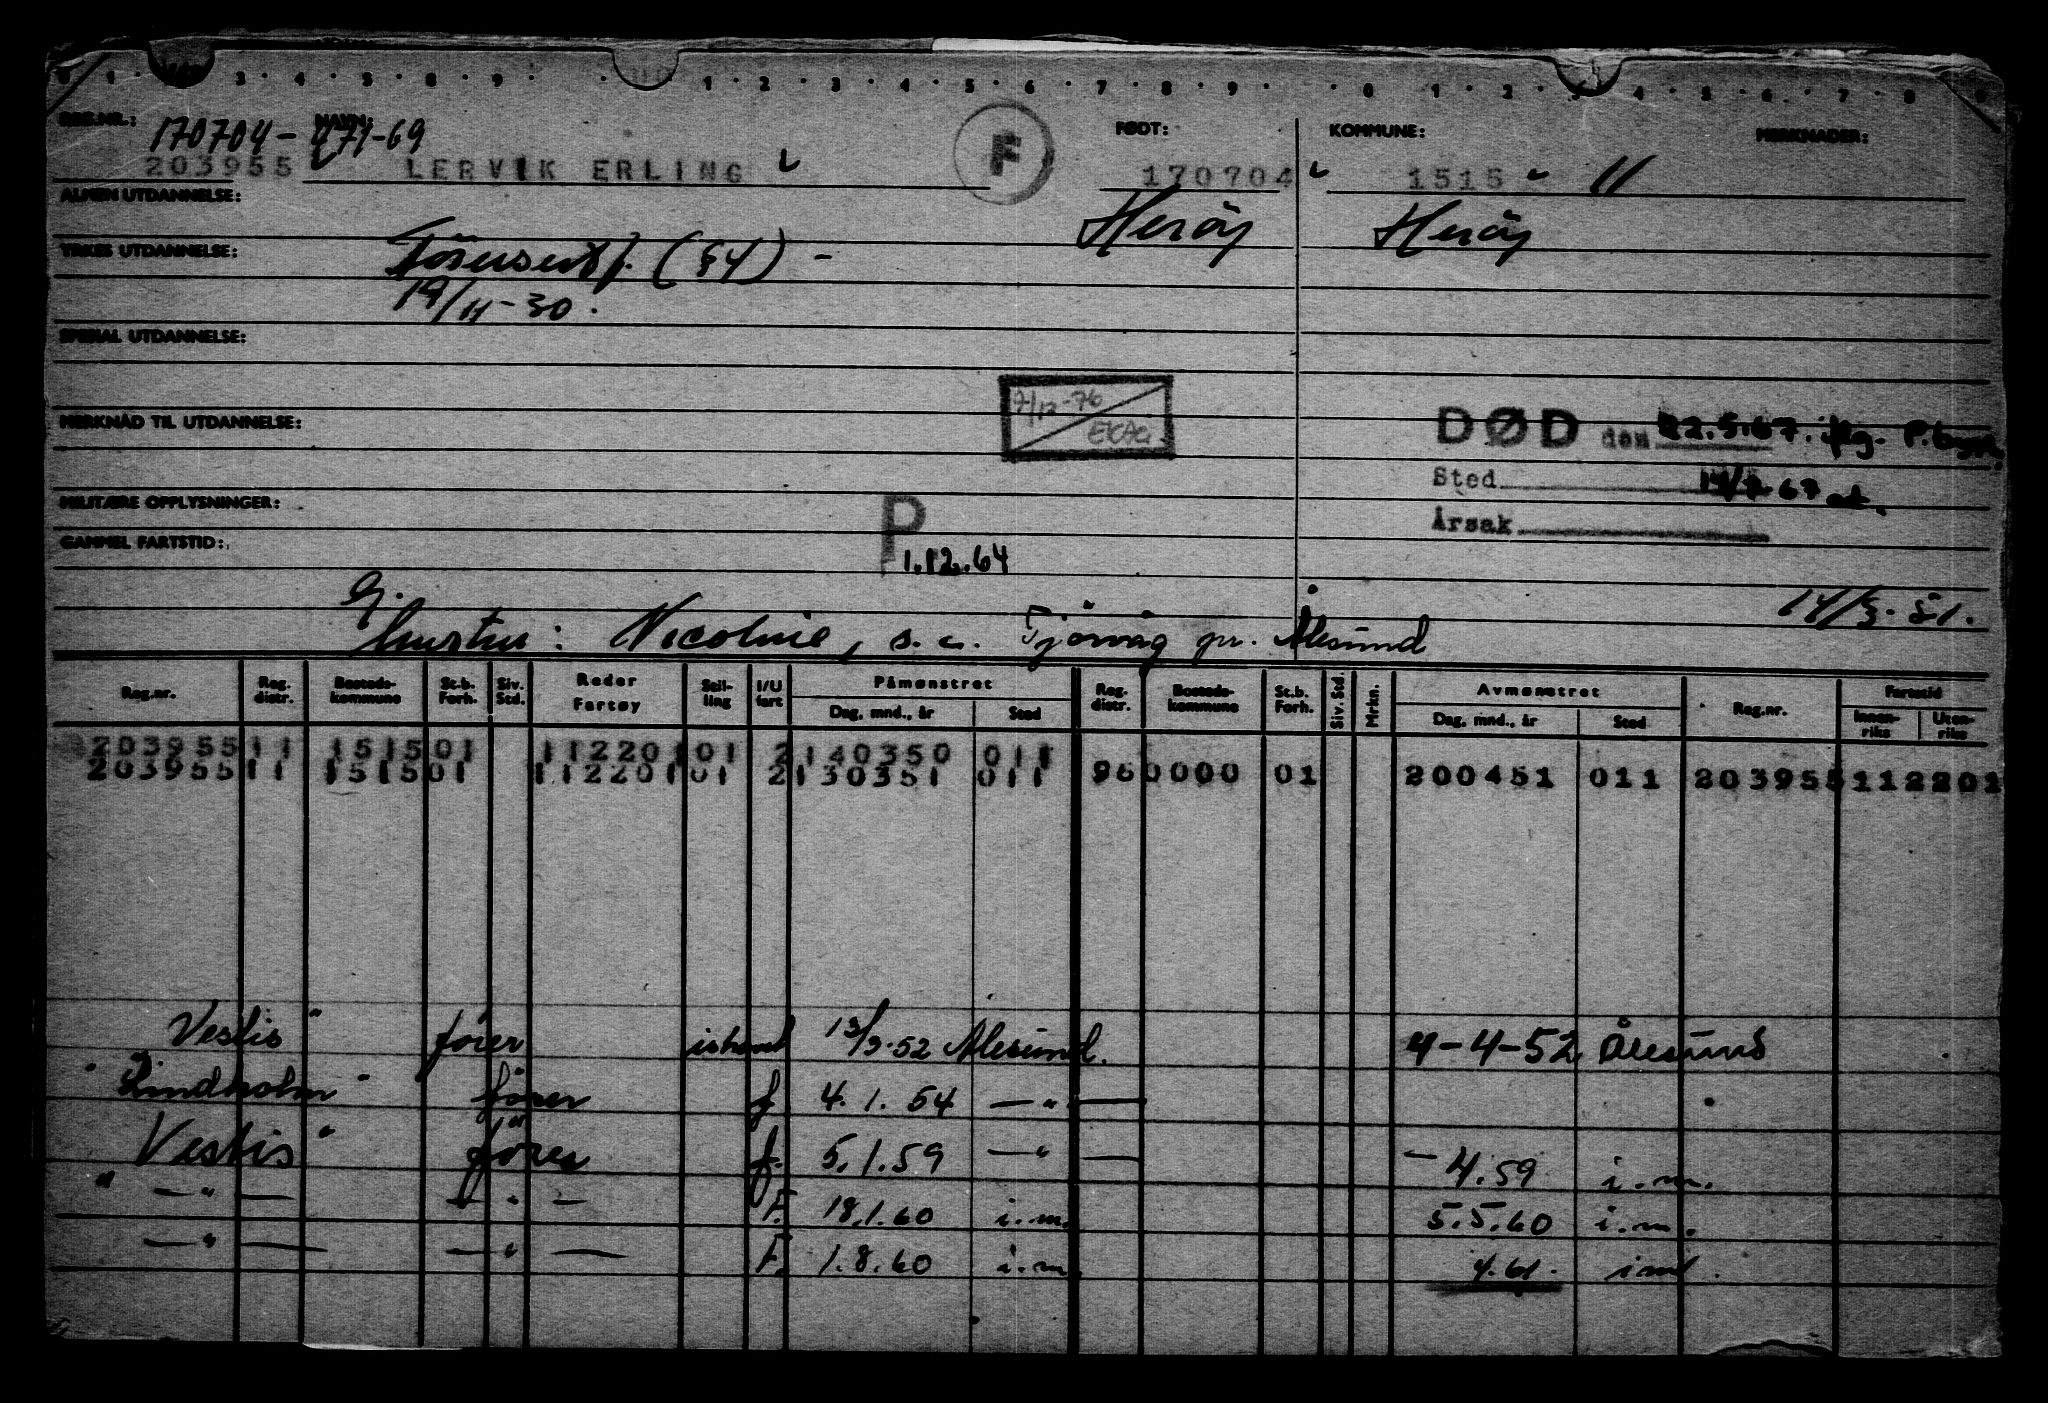 0 1 3 4 5 8 9 1 2 3 4 5 6 7 8 9 0 1 2 3 4 5 6 7 8
REG.NR.: 170704 - 471-69 NAVN: F FØDT: KOMMUNE: MERKNADER:
203955 LERVIK ERLING 170704 1515 11
ALMEN UTDANNELSE: Herøy Herøy
YRKES UTDANNELSE: (§4) -
19/11-30.
SPESIAL UTDANNELSE:
7/12-76
MERKNAD TIL UTDANNELSE: DØD den 22.5.67. ifg.
Sted 67
MILITÆRE OPPLYSNINGER: P Årsak
GAMMEL FARTSTID: 1.12.64
G. 14/3-51.
hustru: Nicoline, s.a. Tjørvåg pr. Ålesund
Reg.nr. Reg. distr. Bosteds-kommune St.b. Forh. Siv. Std. Reder Fartøy Stil-ling I/U fart Påmønstret Dag, mnd., år Sted Reg. distr. Bosteds-kommune St.b. Forh. Siv. Std. Mrkn. Avmønstret Dag, mnd., år Sted Reg.nr. Fartstid Innen-riks Uten-riks
203955 11 1515 01 112201 01 2 140350 011
203955 11 1515 01 112201 01 2 130351 011 96 0000 01 200451 011 203955 112201
Vestis" fører ishavet 13/3-52 Ålesund. 4-4-52 Ålesund
"Lindholm" fører f 4.1.54 — " —
Vestis" fører f. 5.1.59 — " — - 4.59 i.m.
" — " — — " — F. 18.1.60 i.m. 5.5.60 i.m.
— " — — " — F. 1.8.60 i.m. 4.61. i.m.